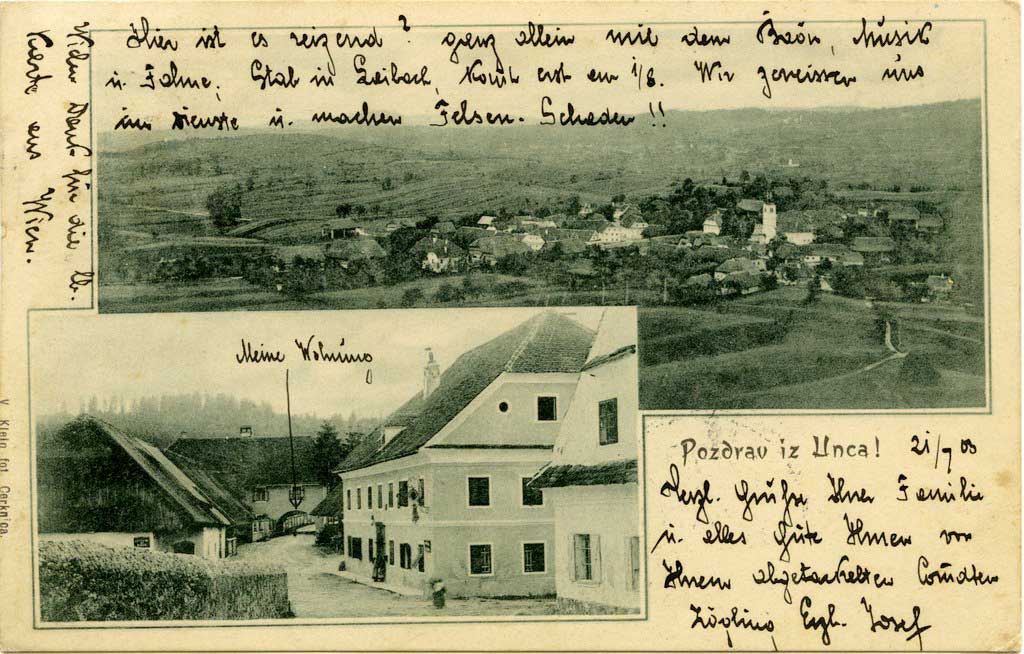 Hier ist es reizend? ganz allein mit dem Baon, Musik
u. Fahne, Stab in Laibach, kommt erst am 1/8. Wir zereissen uns
im Dienste u. machen Felsen-Schaden!!
Vielen Dank für die l.
Karte aus Wien.
Meine Wohnung
V. Klein fot. Cerknica.
Pozdrav iz Unca! 21/7 03
Herzl. Grüße Ihrer Familie
u. alles Gute Ihnen von
Ihrem
Zögling Josef